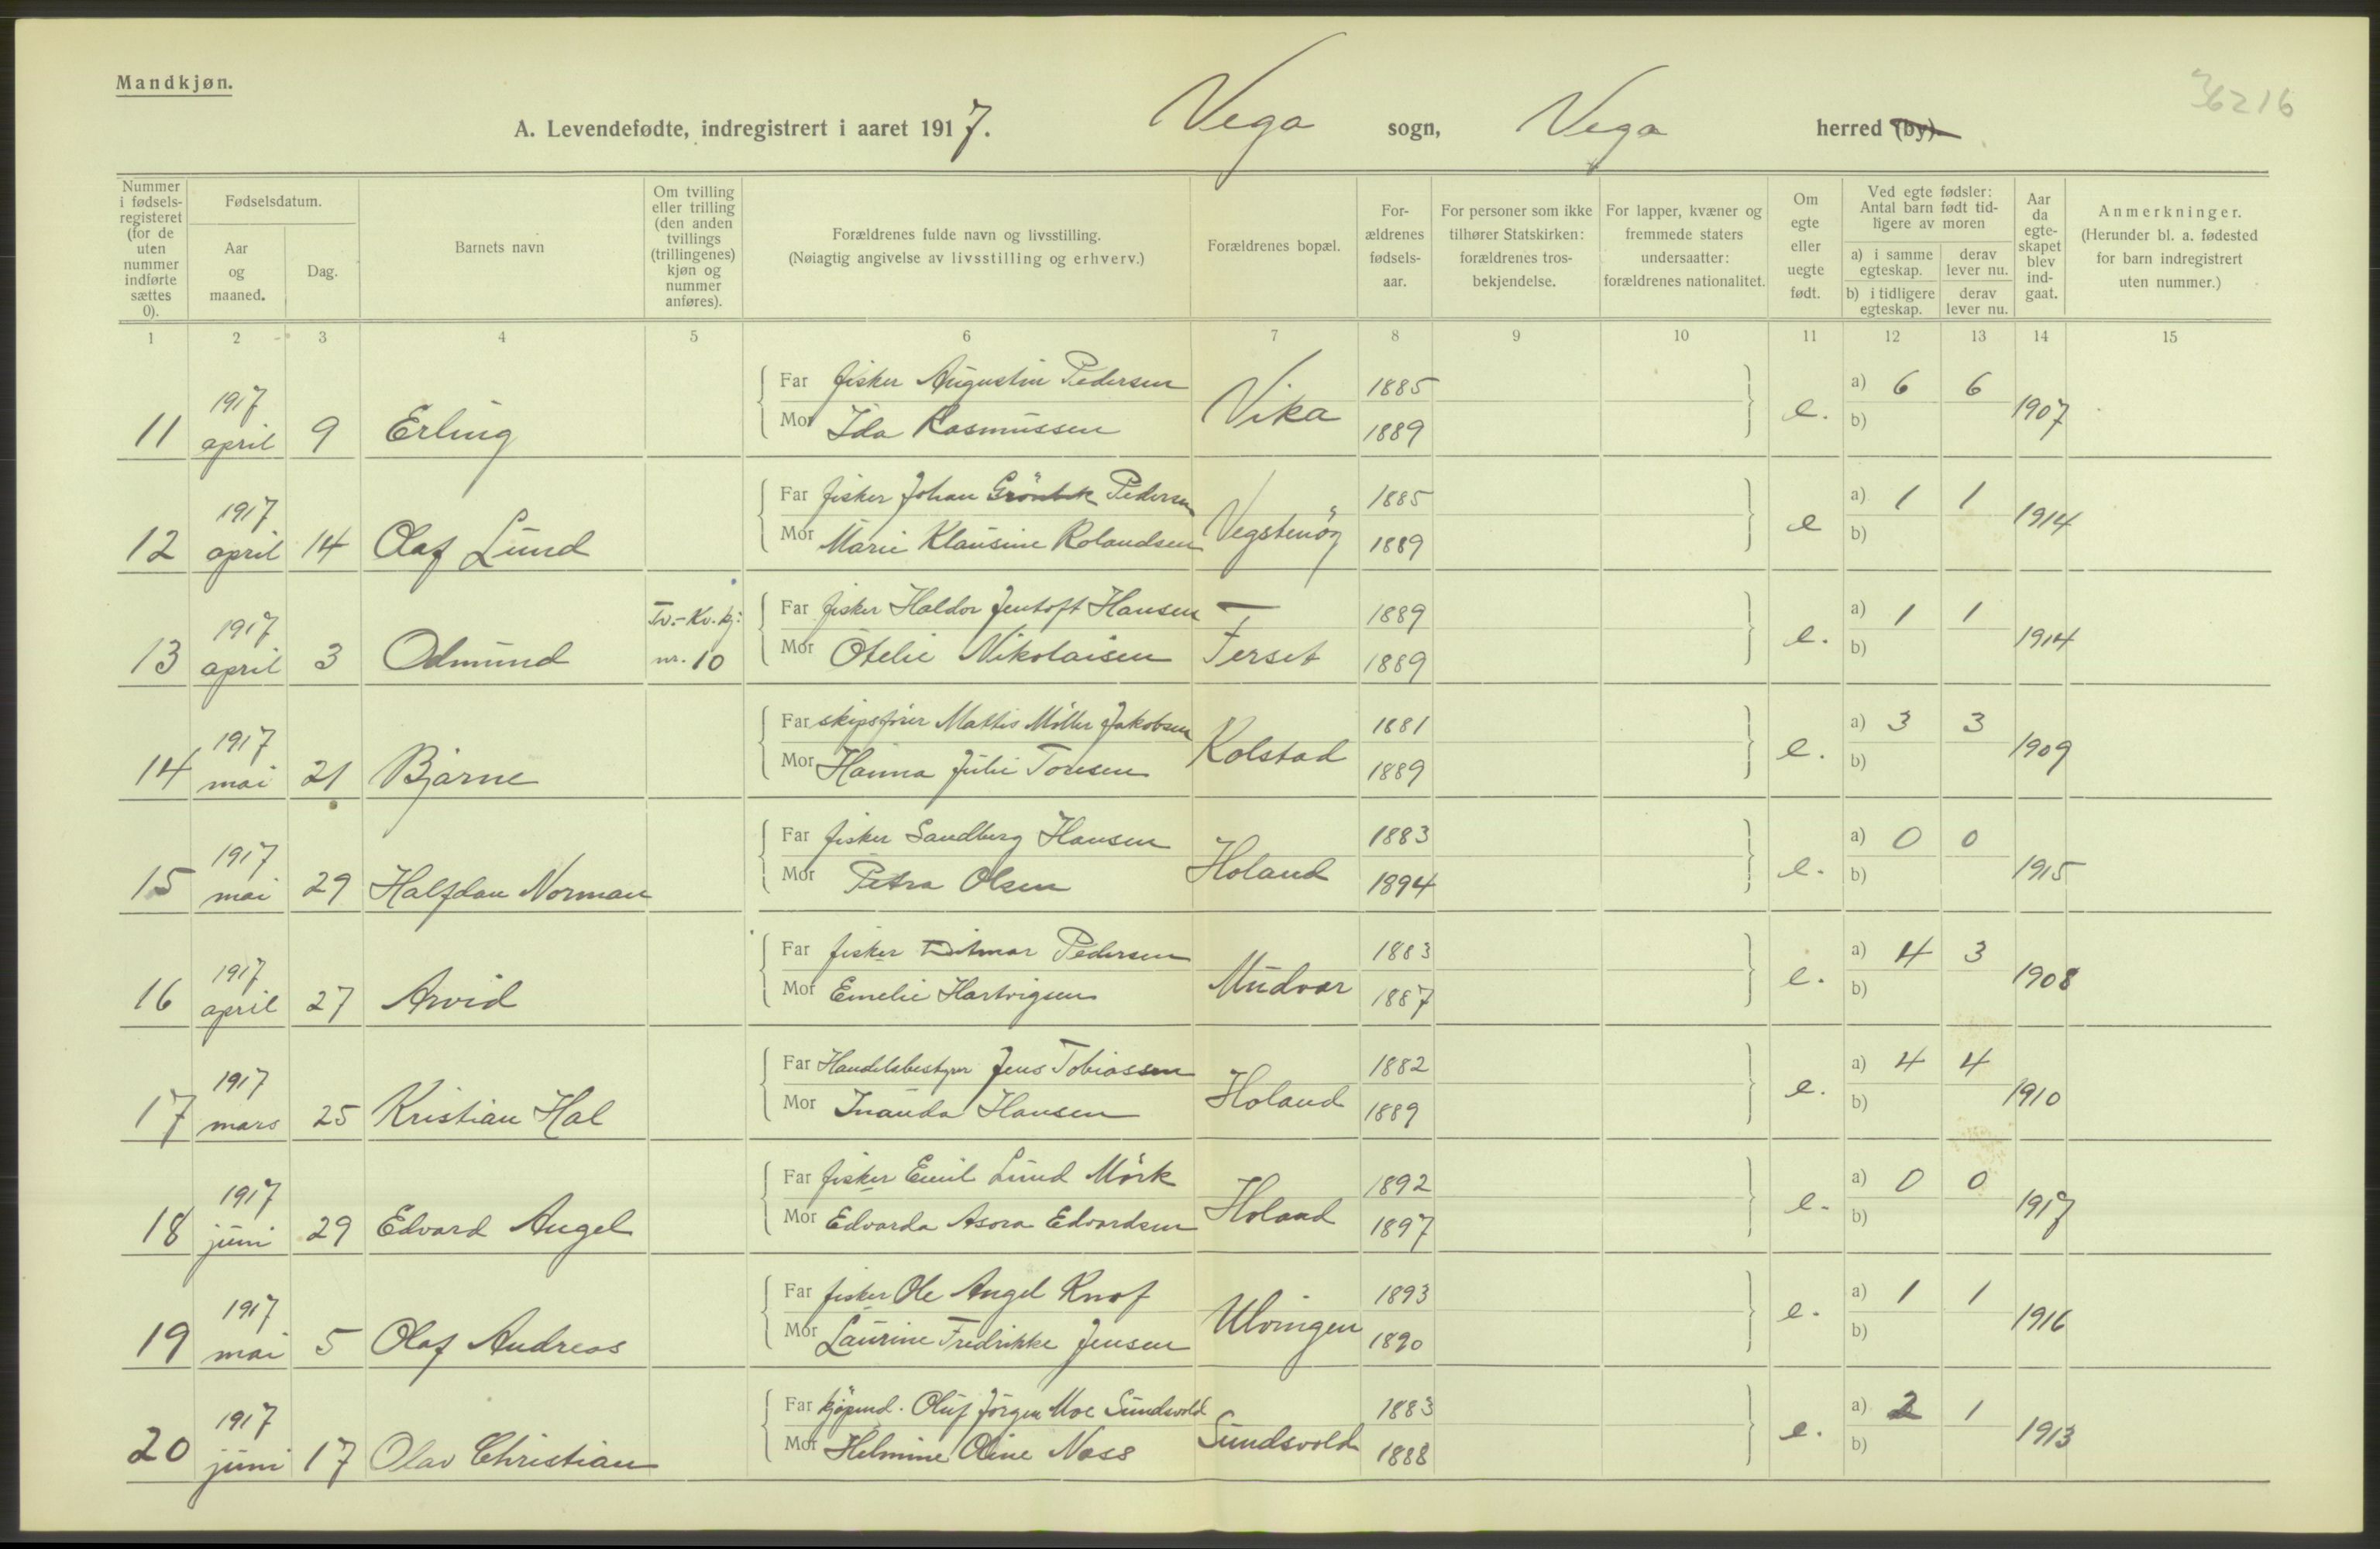 Mandkjøn.
36216
A. Levendefødte, indregistrert i aaret 1917. Vega sogn, Vega herred (by).
Nummer i fødsels-registeret (for de uten nummer indførte sættes 0).
Fødselsdatum.
Aar og maaned.
Dag.
Barnets navn
Om tvilling eller trilling (den anden tvillings (trillingenes) kjøn og nummer anføres).
Forældrenes fulde navn og livsstilling.
(Nøiagtig angivelse av livsstilling og erhverv.)
Forældrenes bopæl.
For-ældrenes fødsels-aar.
For personer som ikke tilhører Statskirken: forældrenes tros-bekjendelse.
For lapper, kvæner og fremmede staters undersaatter: forældrenes nationalitet.
Om egte eller uegte født.
Ved egte fødsler: Antal barn født tid-ligere av moren
a) i samme egteskap. derav lever nu.
b) i tidligere egteskap. derav lever nu.
Aar da egte-skapet blev ind-gaat.
Anmerkninger.
(Herunder bl. a. fødested for barn indregistrert uten nummer.)
1 2 3 4 5 6 7 8 9 10 11 12 13 14 15
11 1917 april 9 Erling
Far fisker Augustin Pedersen Vika 1885 e. a) 6 6 1907
Mor Ida Rasmussen 1889 b)
12 1917 april 14 Olaf Lund
Far fisker Johan Grönbek Pedersen Vegstenöy 1885 e a) 1 1 1914
Mor Marie Klausine Rolandsen 1889 b)
13 1917 april 3 Odmund Tv.-Kv.kj: nr. 10
Far fisker Haldor Jentoft Hansen Ferset 1889 e. a) 1 1 1914
Mor Otelie Nikolaisen 1889 b)
14 1917 mai 21 Bjarne
Far skipsförer Mattis Möller Jakobsen Kolstad 1881 e. a) 3 3 1909
Mor Hanna Julie Toresen 1889 b)
15 1917 mai 29 Halfdan Norman
Far fisker Sandberg Hansen Holand 1883 e. a) 0 0 1915
Mor Petra Olsen 1894 b)
16 1917 april 27 Arvid
Far fisker Ditmar Pedersen Mudvær 1883 e. a) 4 3 1908
Mor Emelie Hartvigsen 1887 b)
17 1917 mars 25 Kristian Hal
Far Handelsbestyrer Jens Tobiassen Holand 1882 e. a) 4 4 1910
Mor Inanda Hansen 1889 b)
18 1917 juni 29 Edvard Angel
Far fisker Emil Lund Mörk Holand 1892 e. a) 0 0 1917
Mor Edvarda Asora Edvardsen 1897 b)
19 1917 mai 5 Olaf Andreas
Far fisker Ole Angel Knof Ulvingen 1893 e. a) 1 1 1916
Mor Laurine Fredrikke Jensen 1890 b)
20 1917 juni 17 Olav Christian
Far kjöpmd. Oluf Jörgen Moe Sundsvold Sundsvold 1883 e. a) 2 1 1913
Mor Helmine Oline Næss 1888 b)